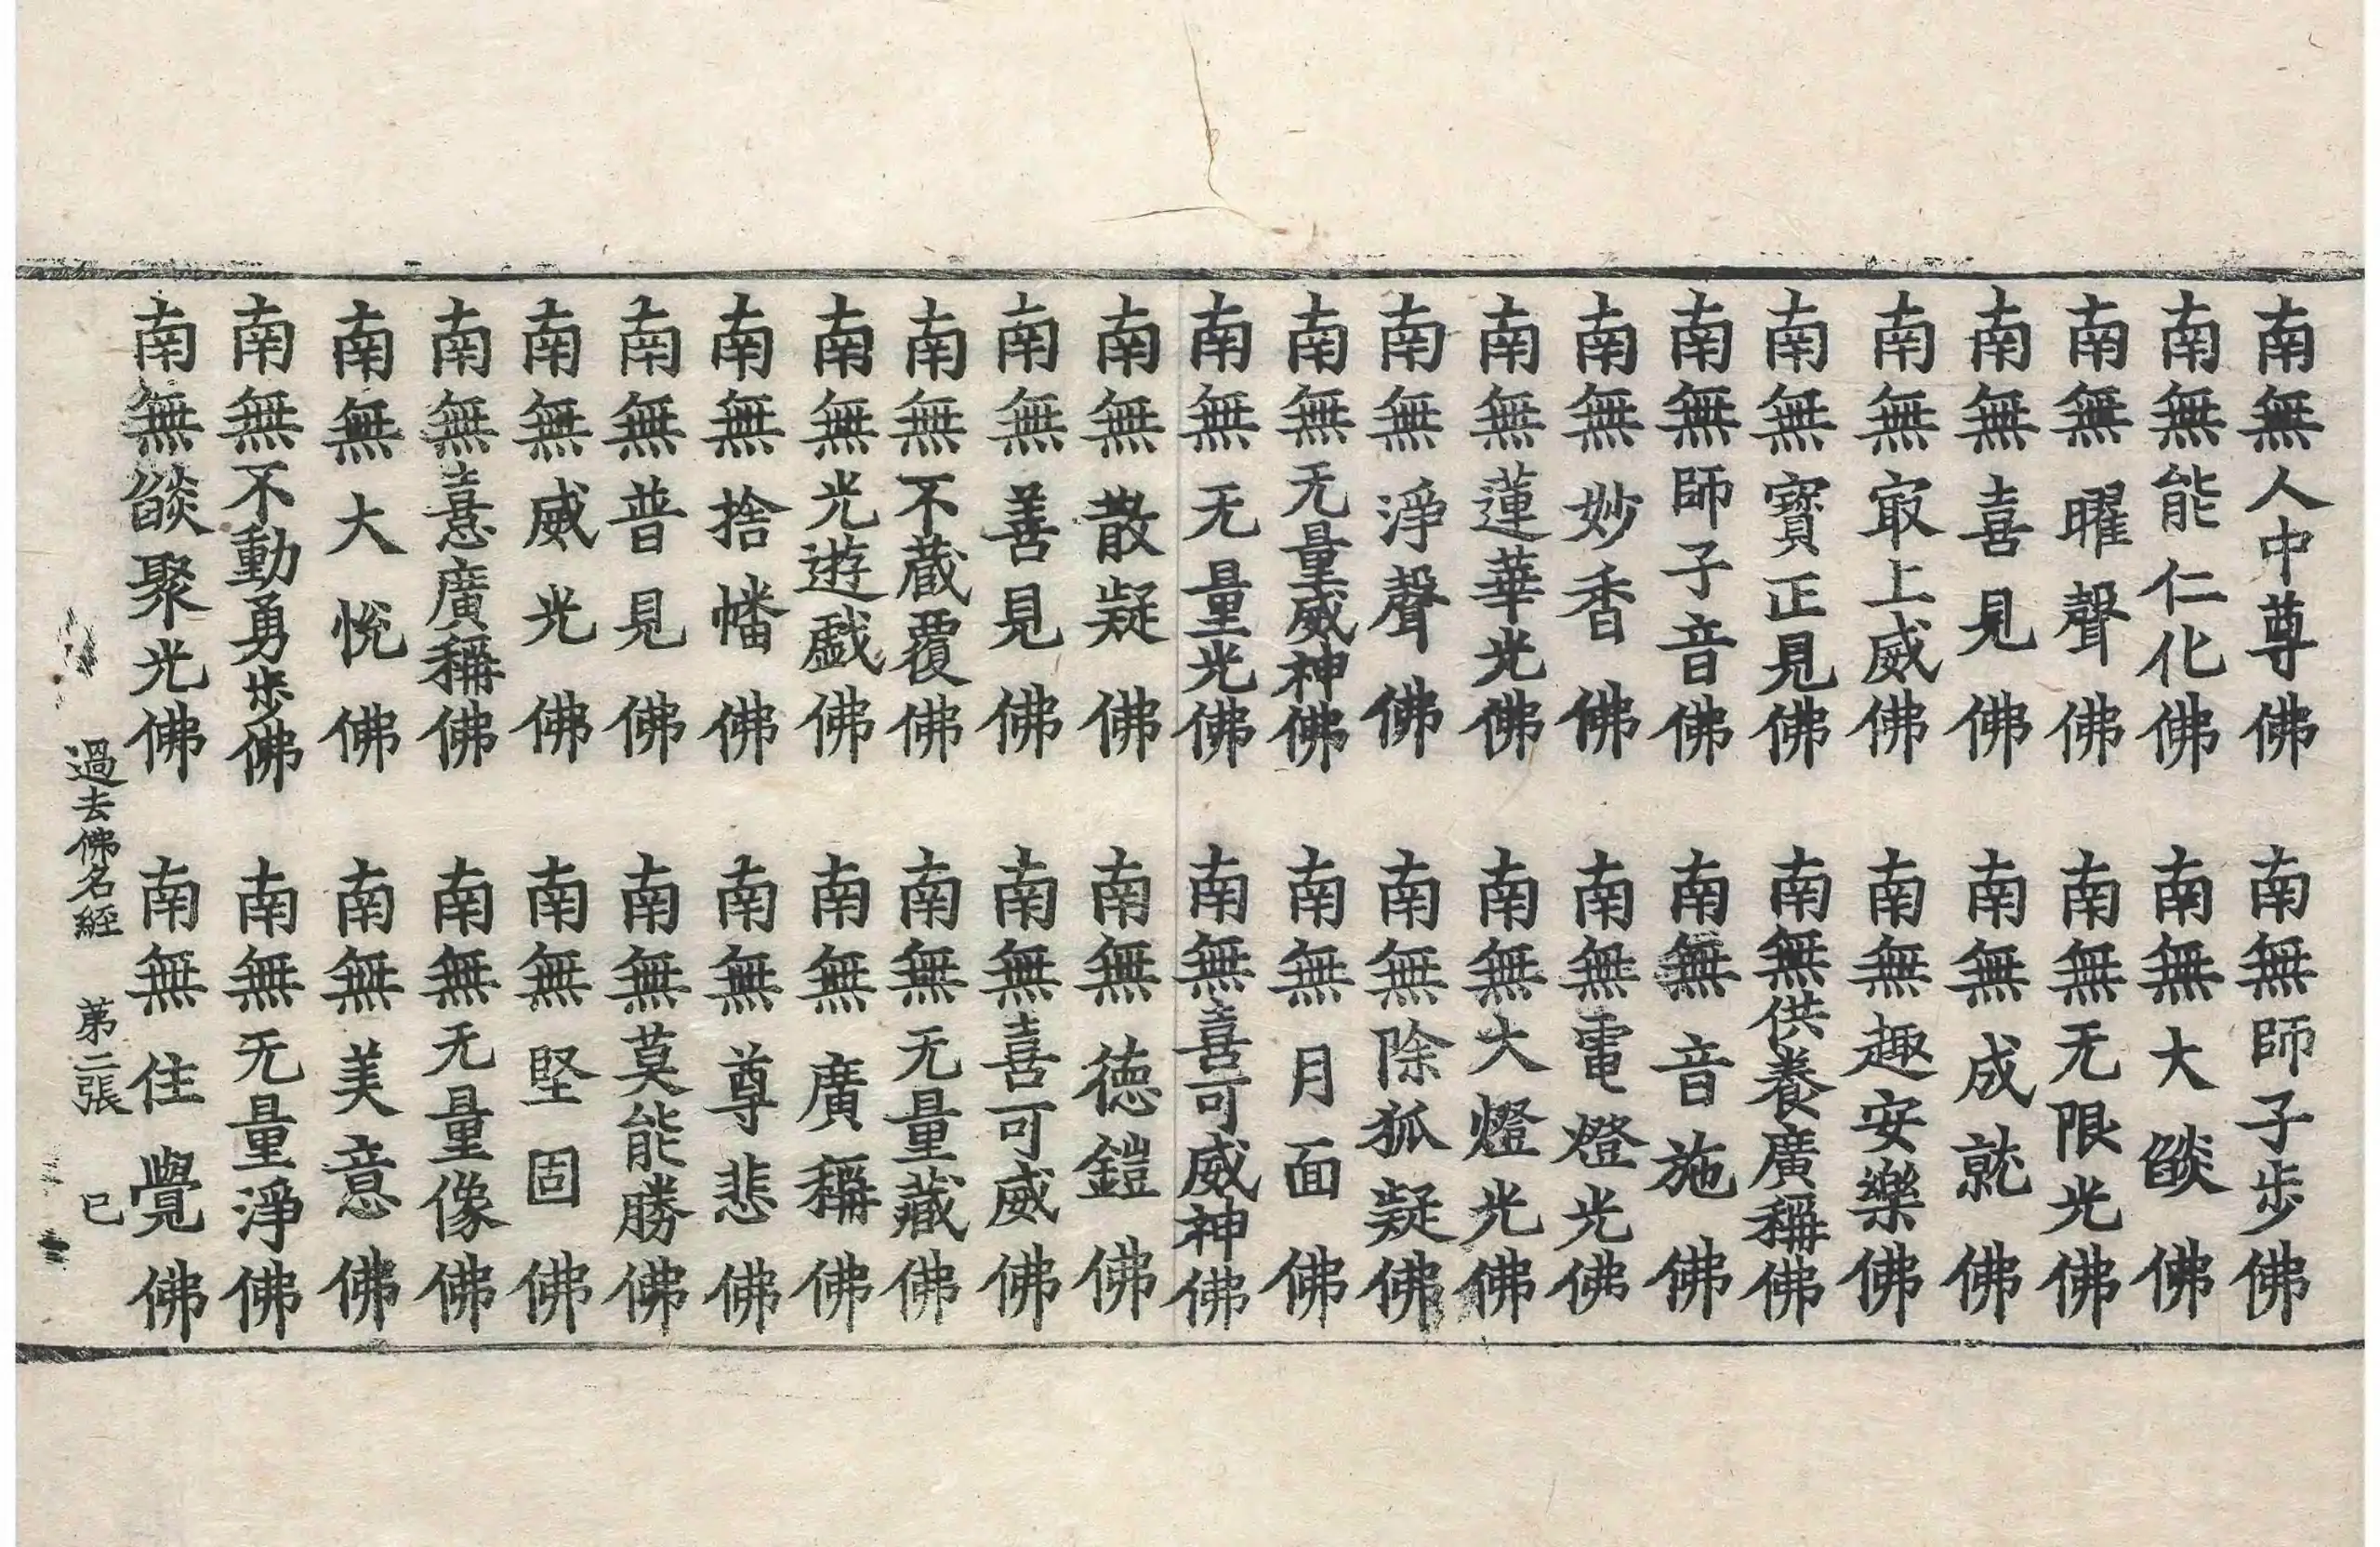 南無人中尊佛　南無師子步佛
南無能仁化佛　南無大燄佛
南無曜聲佛　南無无限光佛
南無喜見佛　南無成就佛
南無冣上威佛　南無趣安樂佛
南無寶正見佛　南無供養廣稱佛
南無師子音佛　南無音施佛
南無妙香佛　南無電燈光佛
南無蓮華光佛　南無大燈光佛
南無淨聲佛　南無除狐疑佛
南無无量威神佛　南無月面佛
南無无量光佛　南無喜可威神佛
南無散疑佛　南無德鎧佛
南無善見佛　南無喜可威佛
南無不藏覆佛　南無无量藏佛
南無光遊戲佛　南無廣稱佛
南無捨幡佛　南無尊悲佛
南無普見佛　南無莫能勝佛
南無威光佛　南無堅固佛
南無憙廣稱佛　南無无量像佛
南無大悅佛　南無美意佛
南無不動勇步佛　南無无量淨佛
南無燄聚光佛　南無住覺佛
過去佛名經　苐二張　已